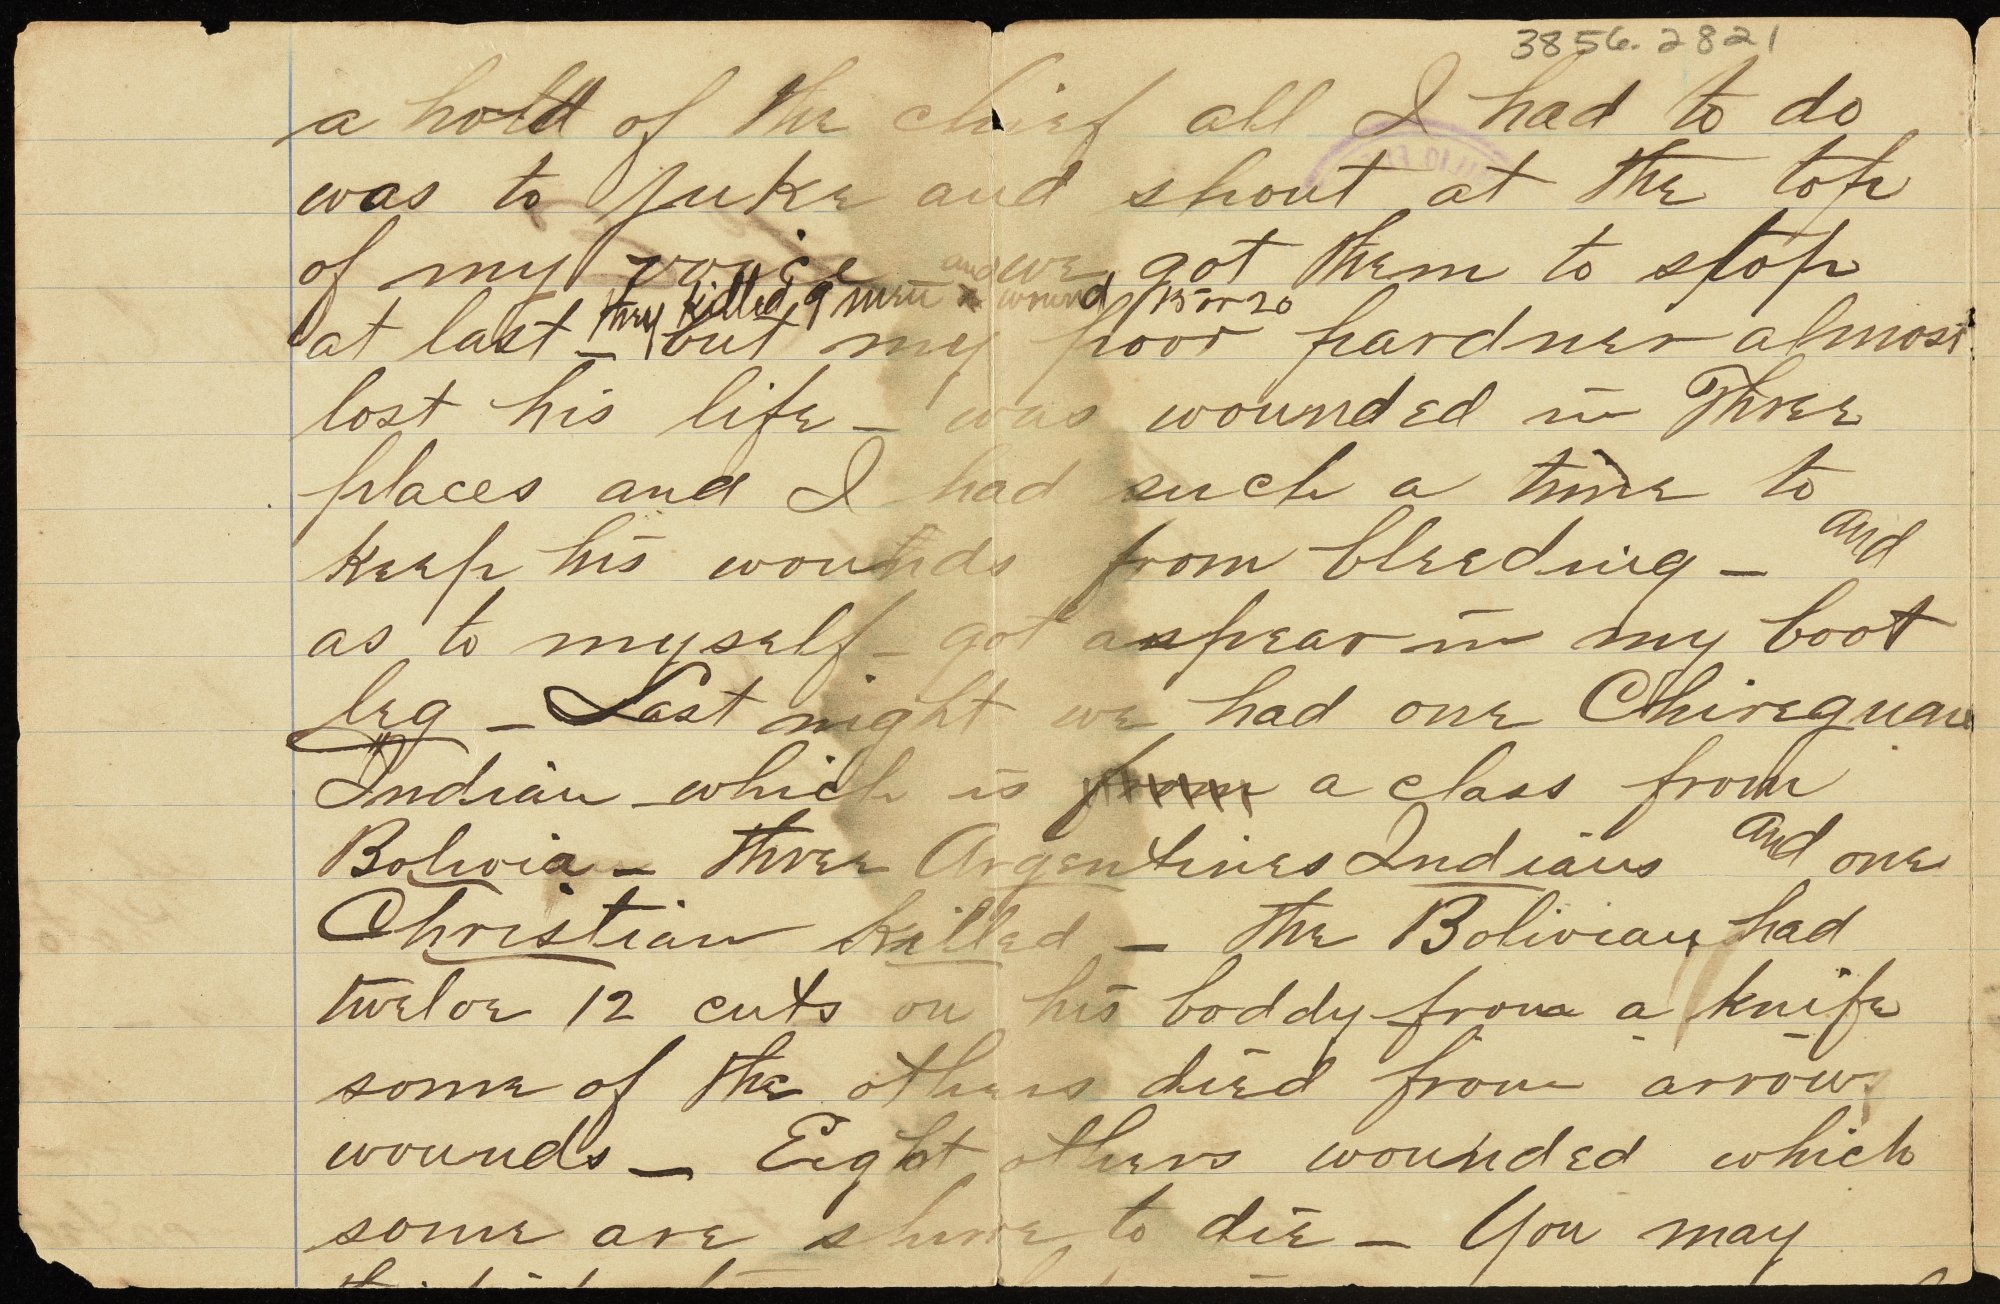 3856.2821
a hold of the chief all I had to do
was to juke and shout at the top
of my voice and we got them to stop
they killed 9 men & wound 15 or 20
at last – but my poor pardner almost
lost his life – was wounded in Three
places and I had such a time to
keep his wounds from bleeding – and
as to myself – got a spear in my boot
leg – Last night we had one Chireguan
Indian which is from a class from
Bolivia – three Argentines Indians and one
Christian killed – the Bolivian had
twelve 12 cuts on his boddy from a knife
some of the others died from arrow
wounds – Eight others wounded which
some are shure to die – You may